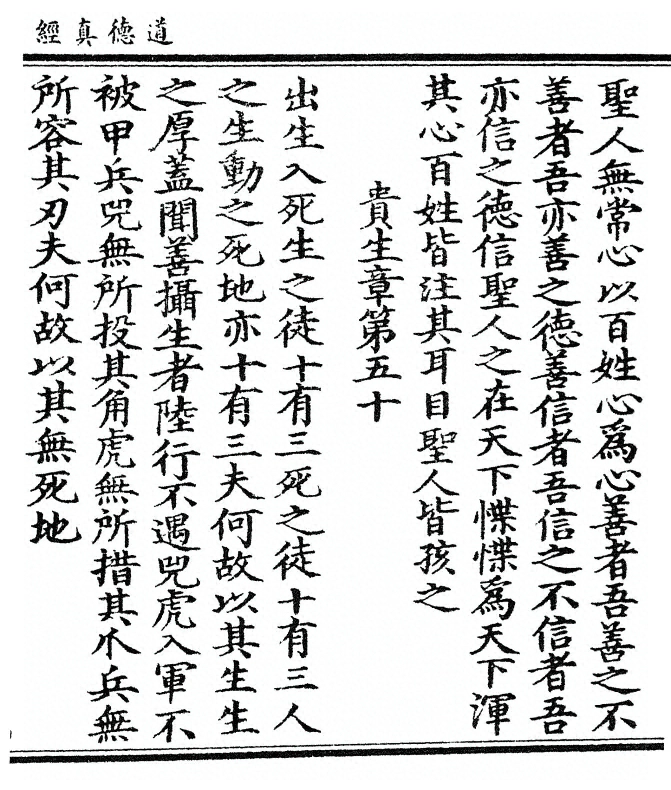 道德真經
聖人無常心以百姓心爲心善者吾善之不
善者吾亦善之德善信者吾信之不信者吾
亦信之德信聖人之在天下惵惵爲天下渾
其心百姓皆注其耳目聖人皆孩之
貴生章第五十
出生入死生之徒十有三死之徒十有三人
之生動之死地亦十有三夫何故以其生生
之厚蓋聞善攝生者陸行不遇兕虎入軍不
被甲兵兕無所投其角虎無所措其爪兵無
所容其刃夫何故以其無死地